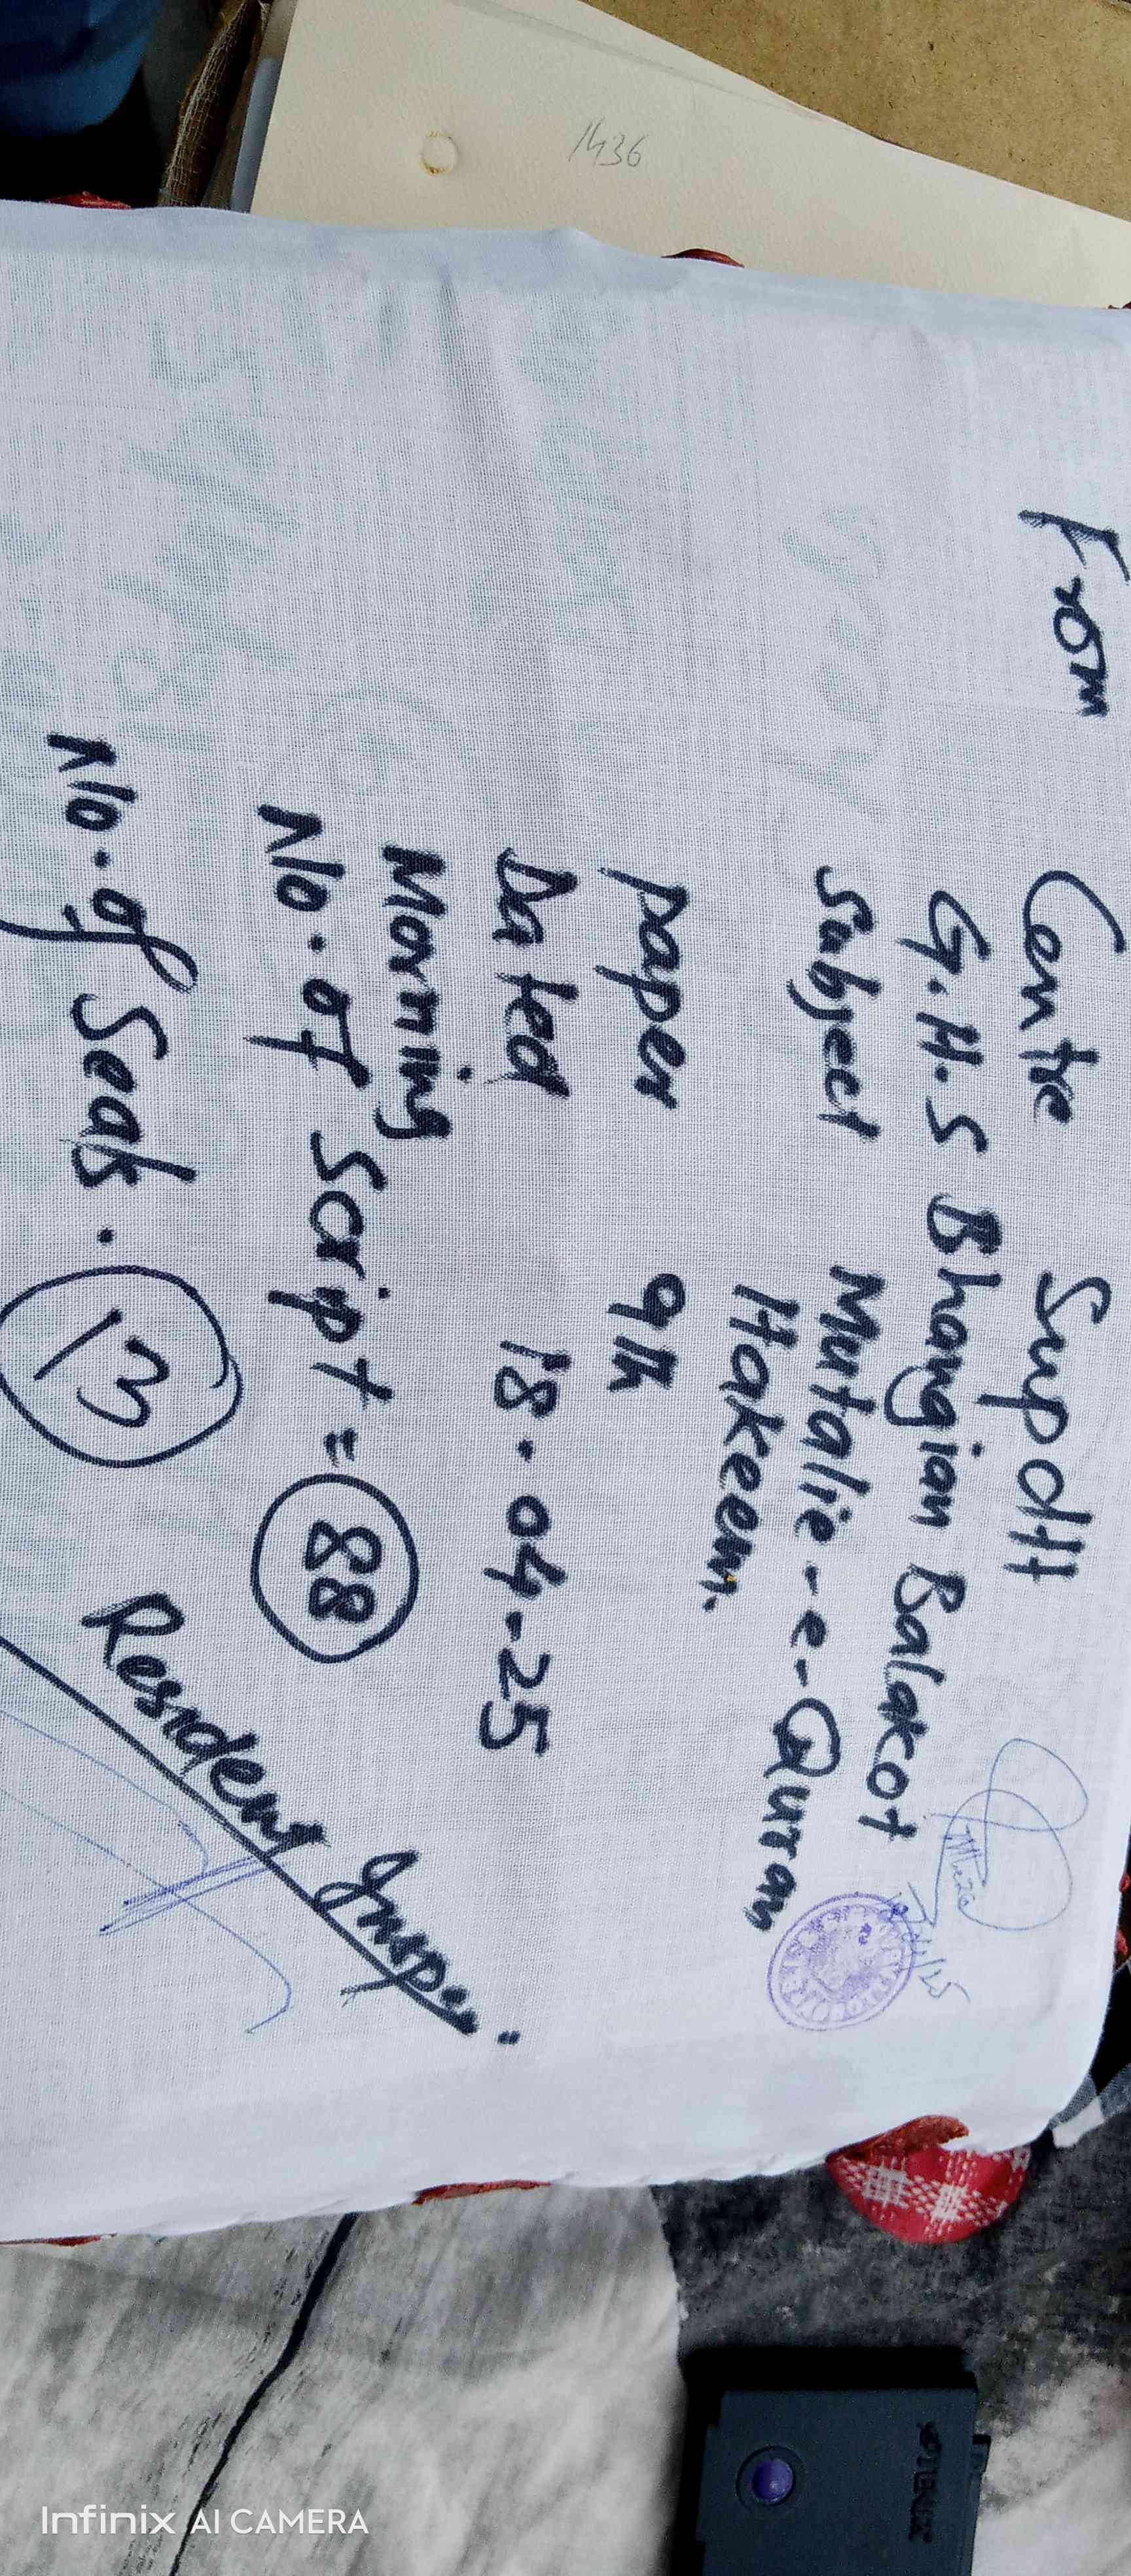 1436
From
Centre Supdtt
G.H.S Bhangian Balakot
Subject Mutalie-e-Quran
Hakeem.
paper 9th
Dated 18-04-25
Morning
No. of Script = 88
No. of Seals. 13
Resident Insp...
Infinix AI CAMERA